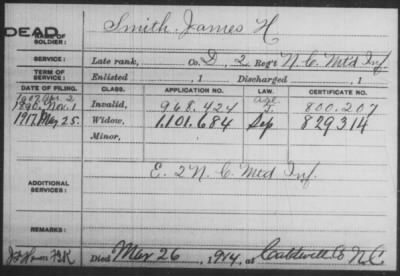 DEAD
NAME OF SOLDIER: Smith, James H
SERVICE: Late rank, Co. D, 2 Reg't N.C. Mtd Inf
TERM OF SERVICE: Enlisted , 1 Discharged , 1
DATE OF FILING. CLASS. APPLICATION NO. LAW. CERTIFICATE NO.
1907 Apr. 2 Age
1890 Nov. 1 Invalid, 968.424 800.207
1917 May 25. Widow, 1.101.684 Sep 829314
Minor,
ADDITIONAL SERVICES: E. 2 N.C. Mtd Inf.
REMARKS:
Died Mar 26, 1914, at Caldwell Co N.C.